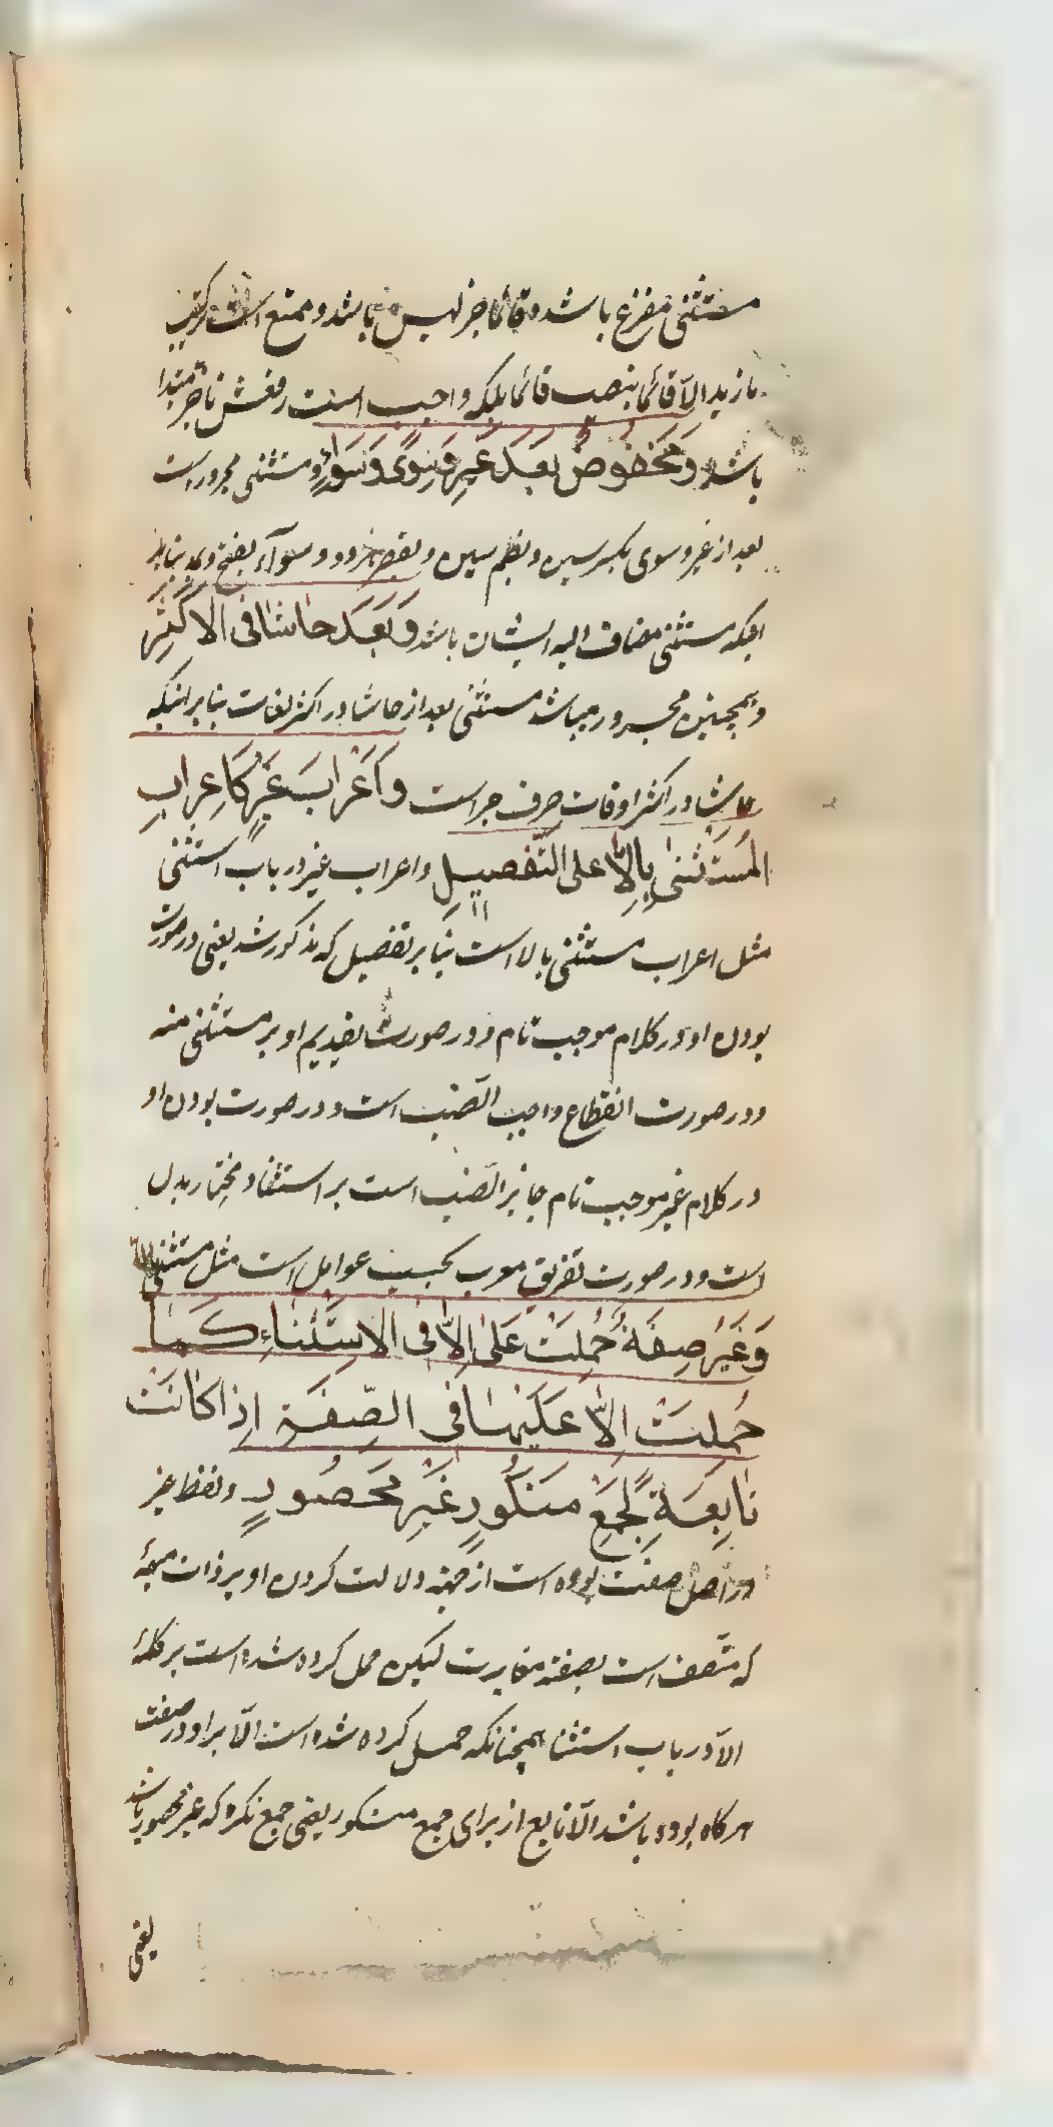 مستثنی مفرغ باشد و قائما خبر لیس باشد و ممتنع است ترکیب
ما زید الّا قائما بنصب قائما بلکه واجب است رفعش تا خبر مبتدا
باشد وَمَخفُوضٌ بَعدَ غَیرِ وَسِوًی وَسَوَاءٍ و مستثنی مجرور است
بعد از غیر و سوی بکسر سین و بضم سین و بقصر هر دو و سوآء بفتح و مد بنابر
اینکه مستثنی مضاف الیه ایشان باشد وَبَعدَ حاشا فی الاَکثَرِ
و همچنین مجرور میباشد مستثنی بعد از حاشا در اکثر لغات بنابر اینکه
حاشا در اکثر اوقات حرف جر است وَاَعرابُ غَیرٍ کَاِعرابِ
المُستَثنیٰ بِالّا عَلی التَّفصیلِ و اعراب غیر در باب استثنی
مثل اعراب مستثنی بالا است بنابر تفصیل که مذکور شد یعنی در صورت
بودن او در کلام موجب تام و در صورت تقدیم او بر مستثنی منه
و در صورت انقطاع واجب النّصب است و در صورت بودن او
در کلام غیر موجب تام جایز النّصب است بر استثنا و مختار بدل
است و در صورت تفریق معرب بحسب عوامل است مثل مستثنی بالّا
وَغَیرُ صِفَةٌ حُمِلَت عَلیٰ اِلّا فی الاِستِثناءِ کَما
حُمِلَت اِلّا عَلَیها فِی الصِّفَةِ اِذا کانَت
تابِعَةً لِجَمعٍ مَنکُورٍ غَیرِ مَحصُورٍ و لفظ غیر
در اصل صفت بوده است از جهة دلالت کردن او بر ذات مبهمه
که متّصف است بصفة مغایرت لیکن حمل کرده شده است بر کلمهٔ
الّا در باب استثنا همچنانکه حمل کرده شده است الّا بر او در صفت
هر کاه بوده باشد الّا تابع از برای جمع منکور یعنی جمع نکره که غیر محصور باشد
یعنی